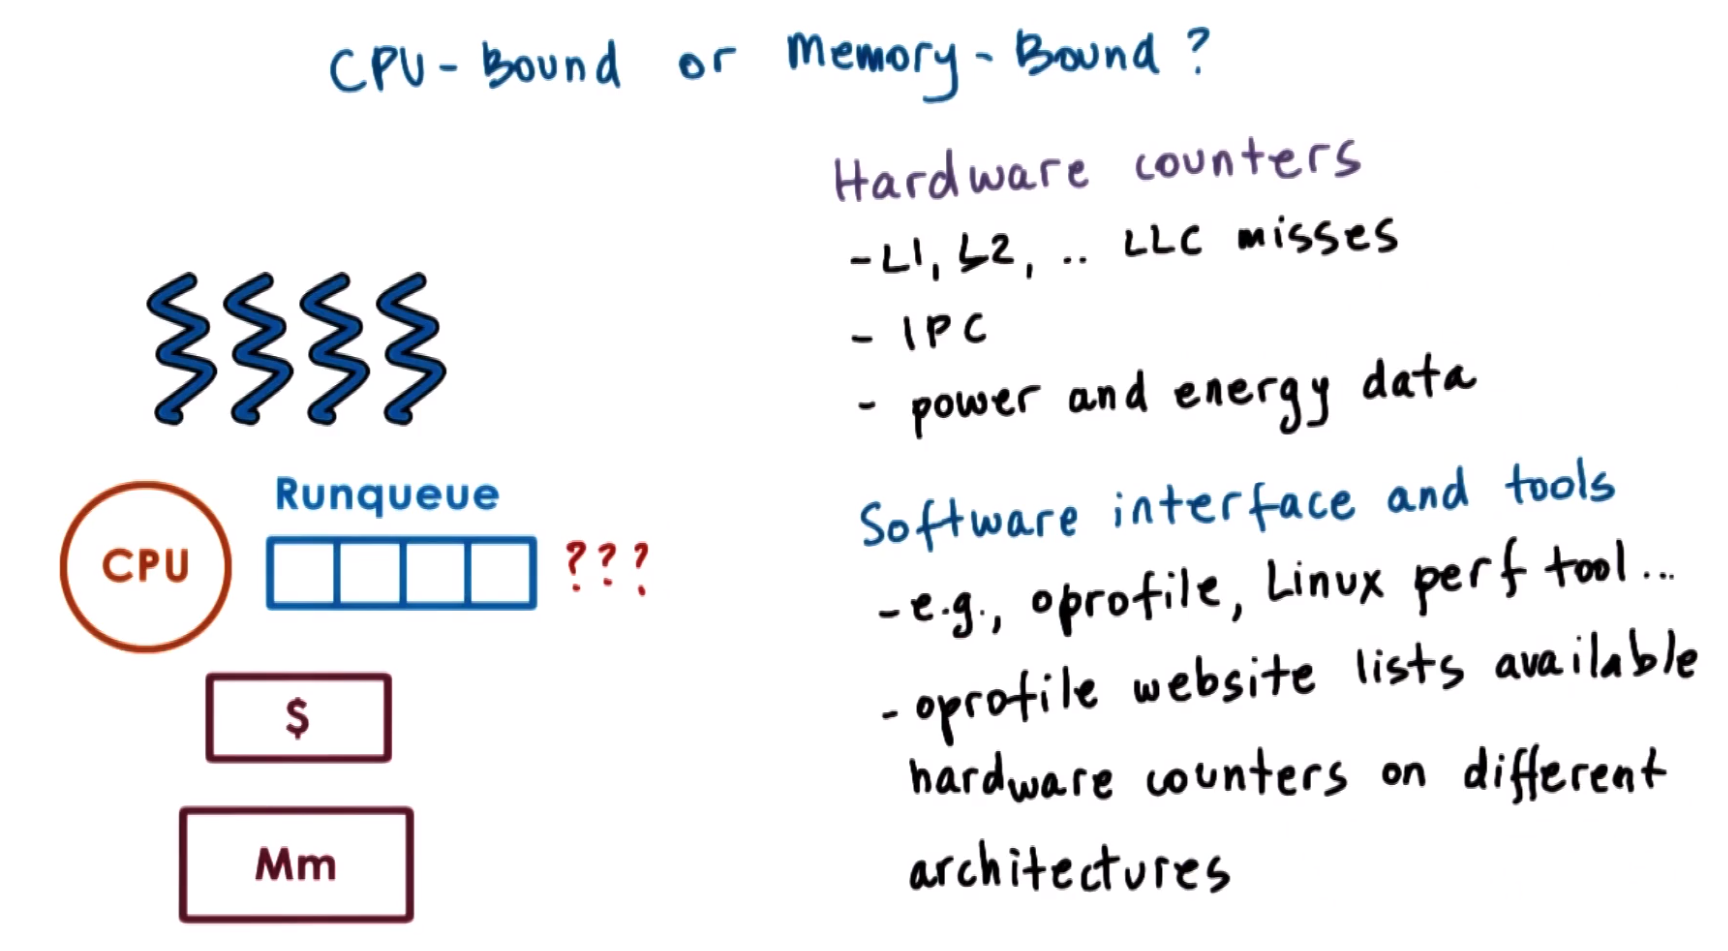 CPU-Bound or Memory-Bound?
Hardware counters
- L1, L2, .. LLC misses
- IPC
- power and energy data
Runqueue
CPU
???
$
Mm
Software interface and tools
- e.g., oprofile, Linux perf tool...
- oprofile website lists available
hardware counters on different
architectures